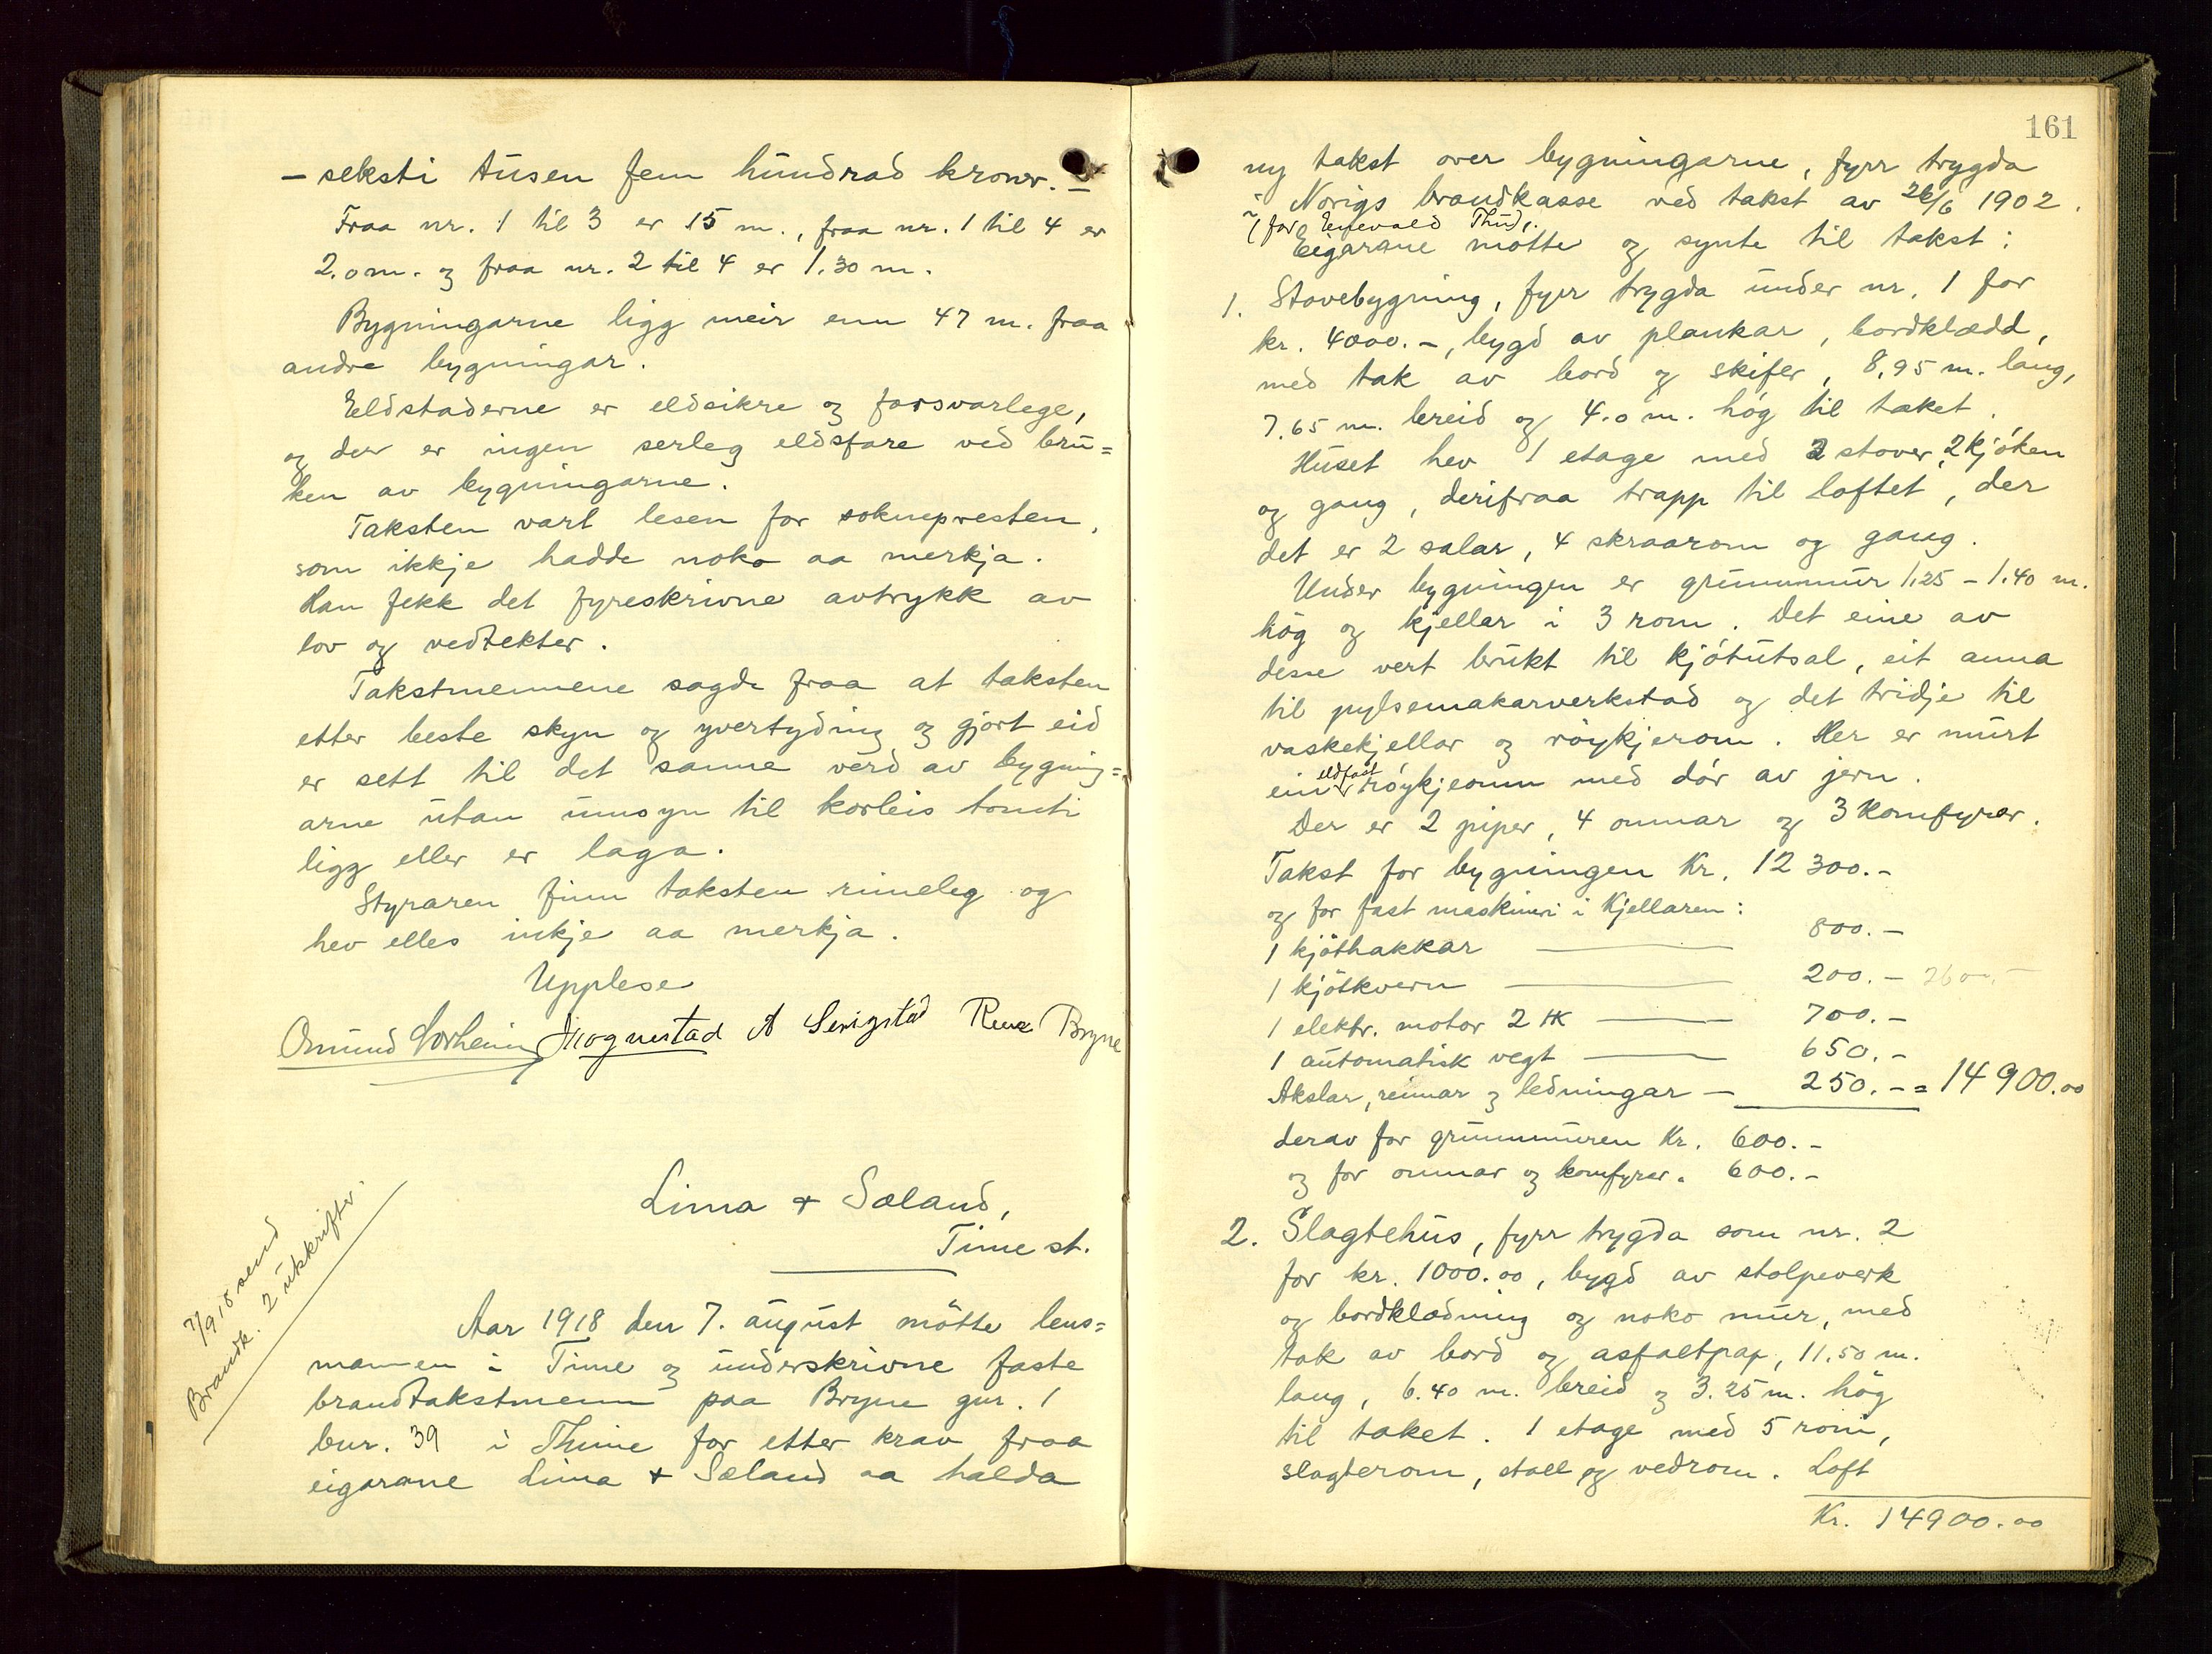 - seksti tusen fem hundrad kroner. -
Fraa nr. 1 til 3 er 15 m., fraa nr. 1 til 4 er
2.0 m. og fraa nr. 2 til 4 er 1.30 m.
Bygningarne ligg meir enn 47 m. fraa
andre bygningar.
Eldstaderne er eldsikre og forsvarlege,
og der er ingen serleg eldsfare ved bru=
ken av bygningarne.
Taksten vart lesen for soknepresten,
som ikkje hadde noko aa merkja.
Han fekk det fyreskrivne avtrykk av
lov og vedtekter.
Takstmennene sagde fraa at taksten
etter beste skyn og yvertyding og gjort eid
er sett til det sanne verd av bygning=
arne utan umsyn til korleis tomti
ligg eller er laga.
Styraren finn taksten rimeleg og
hev elles inkje aa merkja.
Upplese
Osmund Norheim Mognestad A Serigstad Bryne
Lima + Sæland,
Time st.
7/9 18 send
Brandk. 2 utskrifter.
Aar 1918 den 7. august mötte lens=
mannen i Time og underskrivne faste
brandtakstmenn paa Bryne gnr. 1
bnr. 39 i Thime for etter krav fraa
eigarane Lima + Sæland aa halda
161
ny takst over bygningarne, fyrr trygda
i Norigs brandkasse ved takst av 26/6 1902.
(for Enevald Thu).
Eigarane mötte og synte til takst:
1. Stovebygning, fyrr trygda under nr. 1 for
kr. 4000.-, bygd av plankar, bordklædd,
med tak av bord og skifer, 8,95 m. lang,
7.65 m. breid og 4.0 m. hög til taket.
Huset hev 1 etage med 2 stover, 2 kjöken
og gang, derifraa trapp til loftet, der
det er 2 salar, 4 skraarom og gang.
Under bygningen er grunnmur 1.25 - 1.40 m.
hög og kjellar i 3 rom. Det eine av
desse vert brukt til kjötutsal, eit anna
til pylsemakarverkstad og det tridje til
vaskekjellar og röykjerom. Her er murt
ein eldfast röykjeomn med dör av jern.
Der er 2 piper, 4 omnar og 3 komfyrer.
Takst for bygningen Kr. 12 300.-
og for fast maskineri i Kjellaren:
1 kjöthakkar 800.-
1 kjötkvern 200.- 2600.-
1 elektr. motor 2 HK 700.-
1 automatisk vegt 650.-
Akslar, reimar og ledningar - 250.- = 14 900.00
derav for grunnmuren Kr. 600.-
og for omnar og komfyrer. 600.-
2. Slagtehus, fyrr trygda som nr. 2
for kr. 1000.00, bygd av stolpeverk
og bordklædning og noko mur, med
tak av bord og asfaltpap, 11.50 m.
lang, 6.40 m. breid og 3.25 m. hög
til taket. 1 etage med 5 rom,
slagterom, stall og vedrom. Loft
Kr. 14900.00